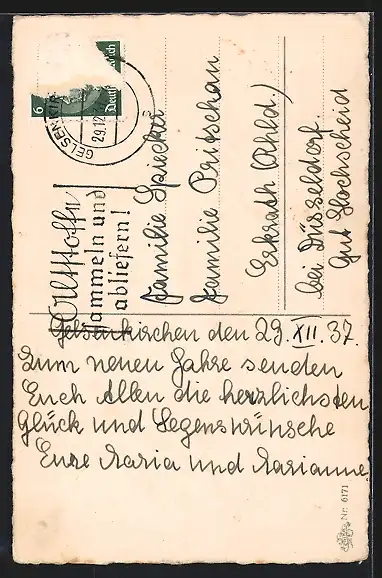 6
Deutsch
GELSENKIRCHEN
29.12
Altstoffe
sammeln und
abliefern!
Familie Spiecker
Familie Pritschau
Erkrath (Rhld)
bei Düsseldorf.
Gut Hochscheid
Gelsenkirchen den 29. XII. 37.
Zum neuen Jahre senden
Euch Allen die herzlichsten
Glück und Segenswünsche
Eure Maria und Marianne.
Nr. 6171